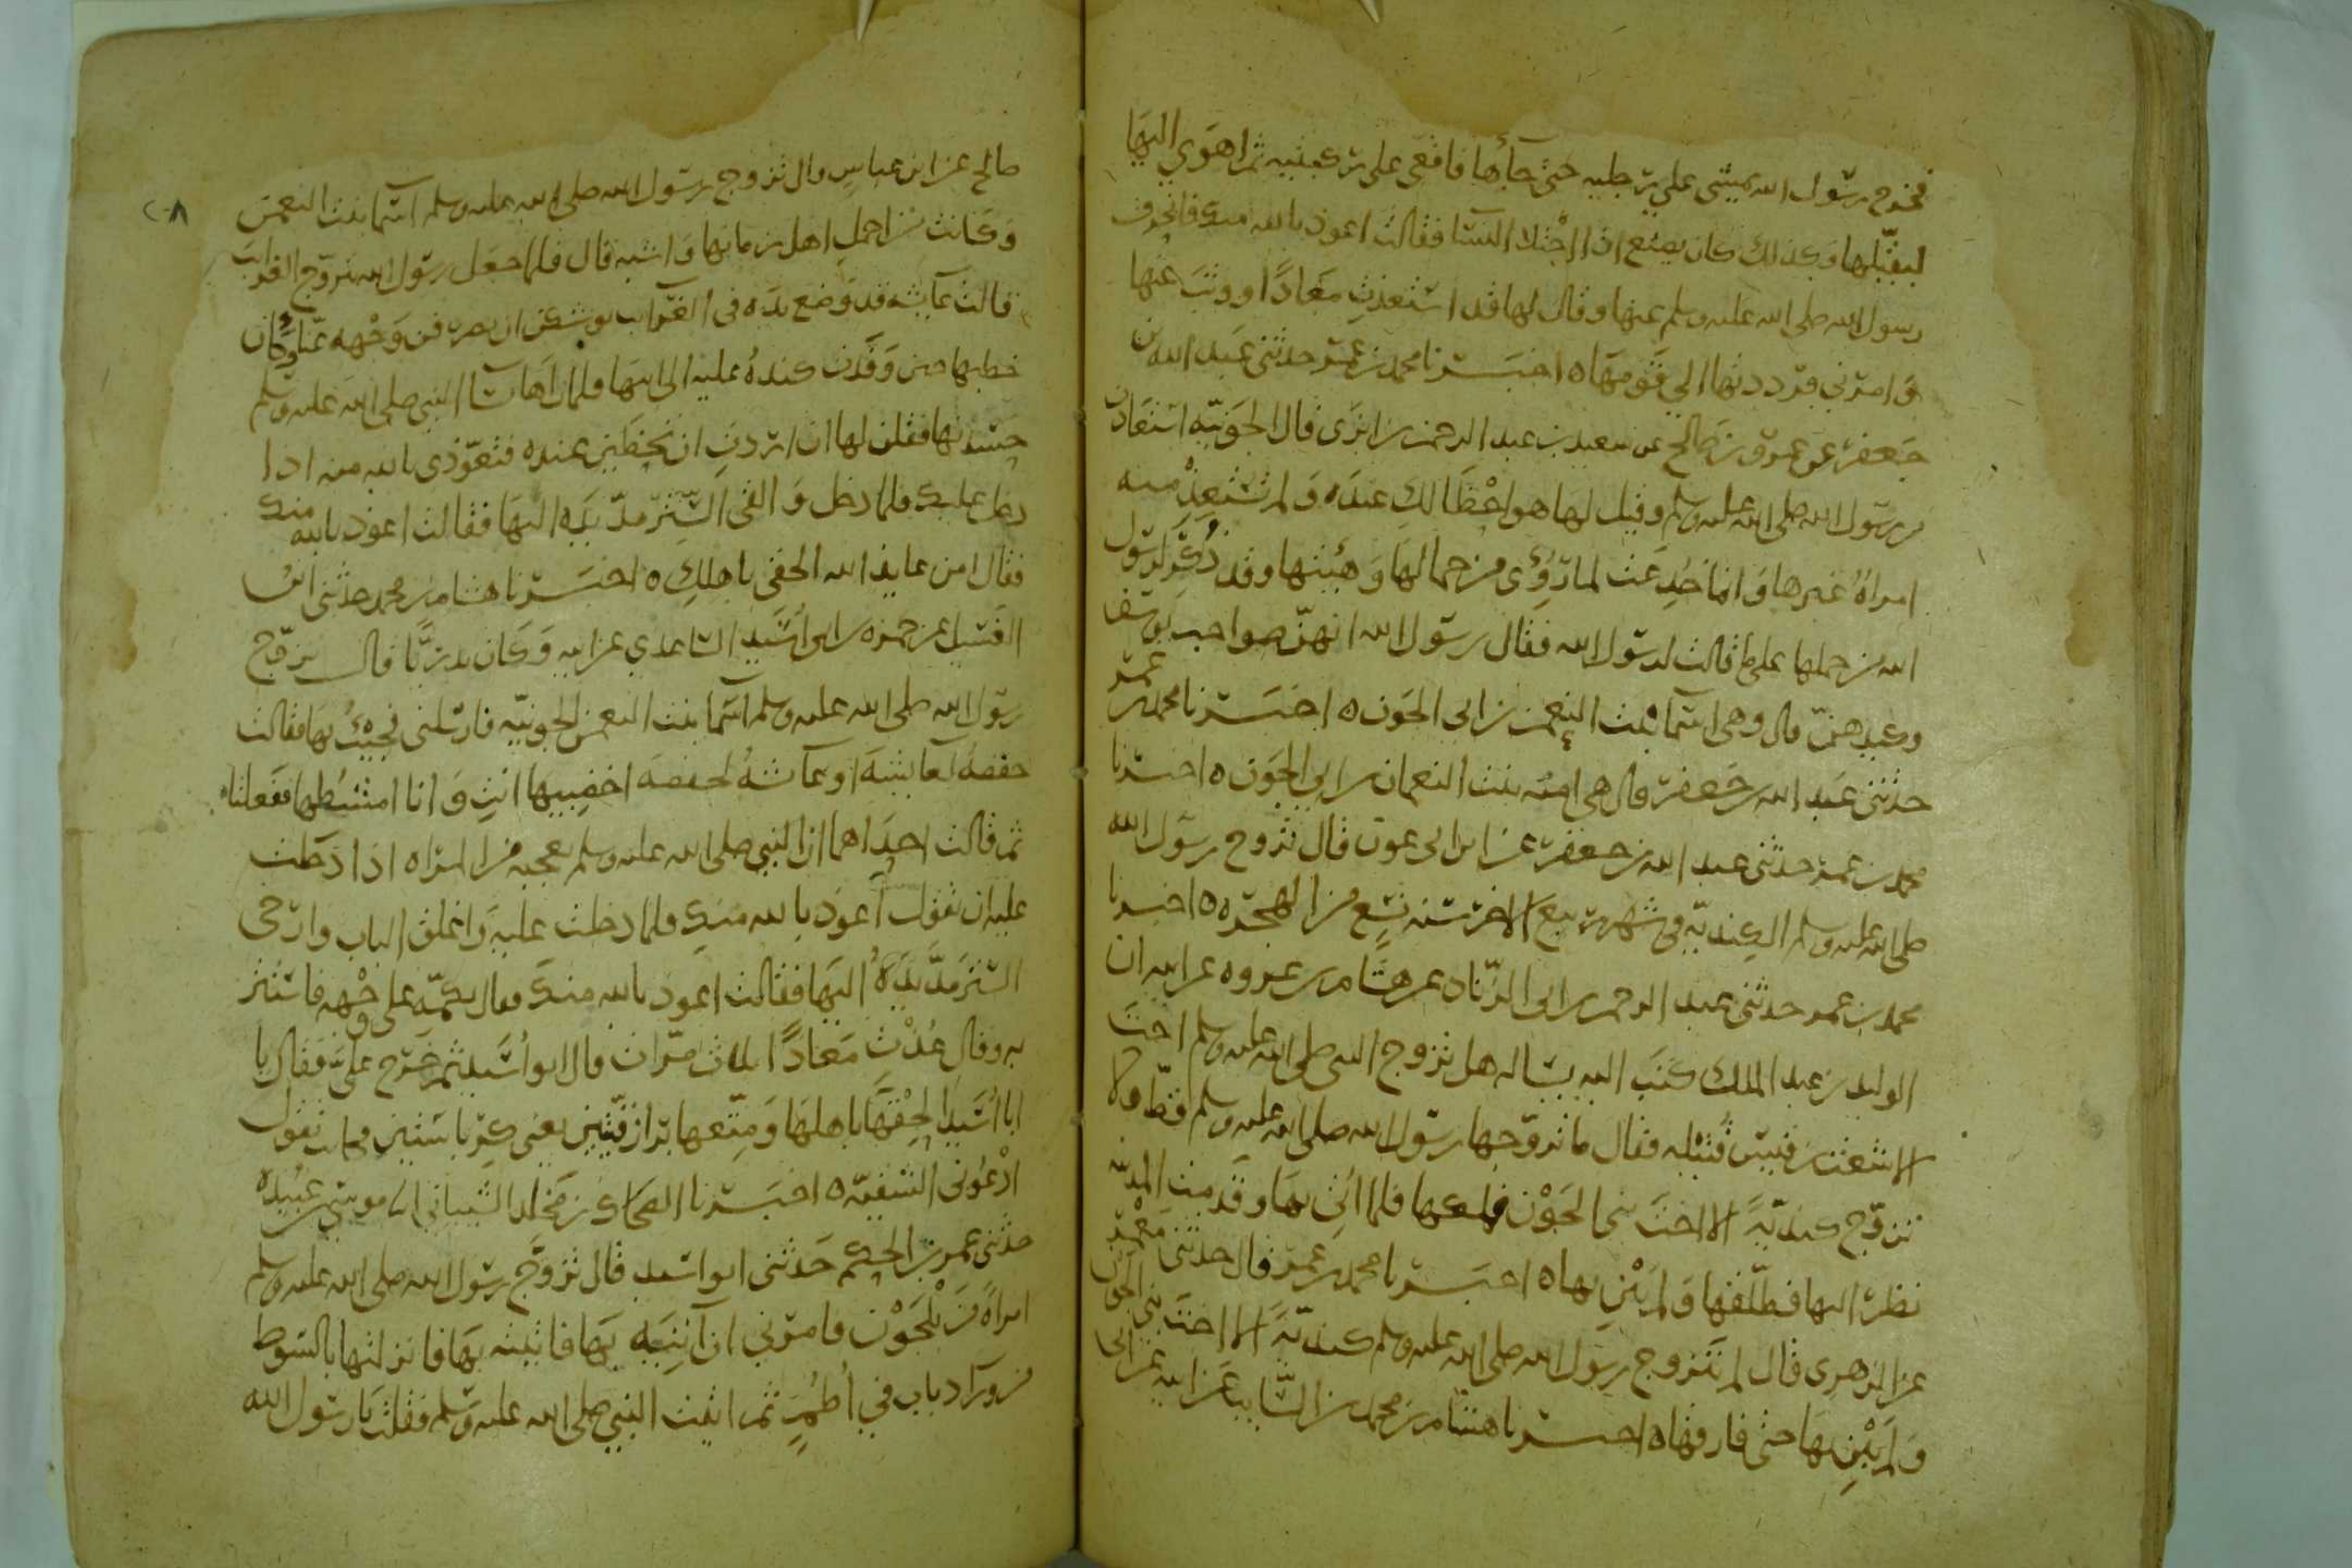 فخرج رسول الله يمشي على رجليه حتى جاءها فاقعى على ركبتيه ثم اهوى اليها
ليقبّلها وكذلك كان يصنع اذا اجتلا النسا فقالت اعوذ بالله منك فانحرف
رسول الله صلى الله عليه وسلم عنها وقال لها قد استعذتِ معاذًا ووثب عنها
وامرني فرددتها الى قومها ٥ اخبرنا محمد بن عمر حدثني عبد الله بن
جعفر عن عمرو بن صالح عن سعيد بن عبد الرحمن بن ابزى قال الجونيّه استعاذت
من رسول الله صلى الله عليه وسلم وقيل لها هو احظا لكِ عنده ولم تستعِذْ منه
امراةٌ غيرها وانما خُدِعت لما رُؤِي من جمالها وهيئتها وقد ذُكر لرسول
الله من حملها على ما قالت لرسول الله فقال رسول الله انهنّ صواحب يوسف
وكيدهنّ قال وهي اسما بنت النعمن بن ابي الجون ٥ اخبرنا محمد بن عمر
حدثني عبد الله بن جعفر قال هي اميّه بنت النعمان بن ابي الجون ٥ اخبرنا
محمد بن عمر حدثني عبد الله بن جعفر عن ابن ابي عون قال تزوج رسول الله
صلى الله عليه وسلم الكنديّه في شهر ربيع الاخر سنه تسع من الهجره ٥ اخبرنا
محمد بن عمر حدثني عبد الرحمن بن ابي الزناد عن هشام بن عروه عن ابيه ان
الوليد بن عبد الملك كتب اليه يساله هل تزوج النبي صلى الله عليه وسلم اخت
الاشعث بن قيس قُتيله فقال ما تزوجها رسول الله صلى الله عليه وسلم قط ولا
تزوّج كنديّةً الا اخت بني الجَوْن فملكها فلما اُتي بها وقدمت المدينه
نظر اليها فطلّقها ولم يَبْنِ بها ٥ اخبرنا محمد بن عمر قال حدثني مَعْمر
عن الزهري قال لم يتزوج رسول الله صلى الله عليه وسلم كنديّةً الا اخت بني الجون
ولم يَبْنِ بها حتى فارقها ٥ اخبرنا هشام بن محمد بن السّايب عن ابيه عن ابي
صالح عن ابن عباس قال تزوج رسول الله صلى الله عليه وسلم اسما بنت النعمن
وكانت من اجمل اهل زمانها واشبه قال فلما جعل رسول الله يتزوّج الغرايب
قالت عايشه قد وضع يده في الغرايب يوشكن ان يصرفن وجهه عنّا وكان
خطبها حين وَفَدت كندهُ عليه الى ابيها فلما راها نسا النبي صلى الله عليه وسلم
حسدنها فقلن لها ان اردتِ ان تحظين عنده فتعوّذي بالله منه اذا
دخل عليك فلما دخل والقى السِّتْر مدّ يده اليها فقالت اعوذ بالله منك
فقال امن عايذ الله الحقي باهلكِ ٥ اخبرنا هشام بن محمد حدثني ابن
الغَسيل عن حمزه بن ابي اُسَيد الساعدي عن ابيه وكان بدريًّا قال تزوّج
رسول الله صلى الله عليه وسلم اسما بنت النعمن الجونيّه فارسلني فجِئتُ بها فقالت
حفصهُ لعايشهَ او عايشهُ لحفصهَ اخضبيها انتِ وانا امشطها ففعلتا
ثم قالت احداهما ان النبي صلى الله عليه وسلم يعجبه من المراه اذا دخلت
عليه ان تقول اعوذ بالله منك فلما دخلت عليه واغلق الباب وارخى
الستر مدّ يده اليها فقالت اعوذ بالله منك فقال بكمّه على وجهه فاستتر
به وقال عُذْتِ معاذًا ثلاث مرّات قال ابو اُسَيد ثم خرج عليّ فقال يا
ابا اُسَيد الحِقْها باهلها ومتّعها برازقّيتين يعني كرباستين فكانت تقول
ادْعوني الشقيّه ٥ اخبرنا الضحاك بن مخلد الشيباني انا موسى بن عُبيده
حدثني عمر بن الحكم حدثني ابو اسيد قال تزوّج رسول الله صلى الله عليه وسلم
امراةً من بَلْجَوْن فامرني ان آتيه بها فاتيته بها فانزلتها بالشوط
من ورا ذباب في اُطُمٍ ثم اتيت النبي صلى الله عليه وسلم فقلت يا رسول الله